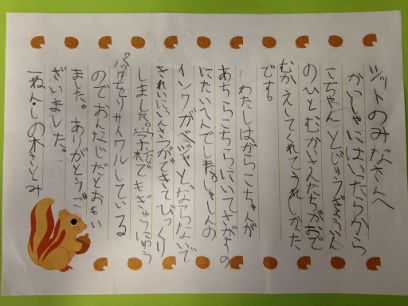 ジットのみなさんへ
かいしゃにはいったらから
こちゃんとじゅうぎょういん
のひとむかさんたちがおで
むかえしてくれてうれしかった
です。
わたしはからこちゃんが
あちらこちらにいてさがすの
にたいへんでした。しゃしんの
インクがベジャとならないで
きれいにいんさつができてびっくり
しました。学校でぎゅうにゅう
パックをリサイクルしている
のでおんなじだとおもい
ました。ありがとうご
ざいました。
一ねんせいの木さとみ